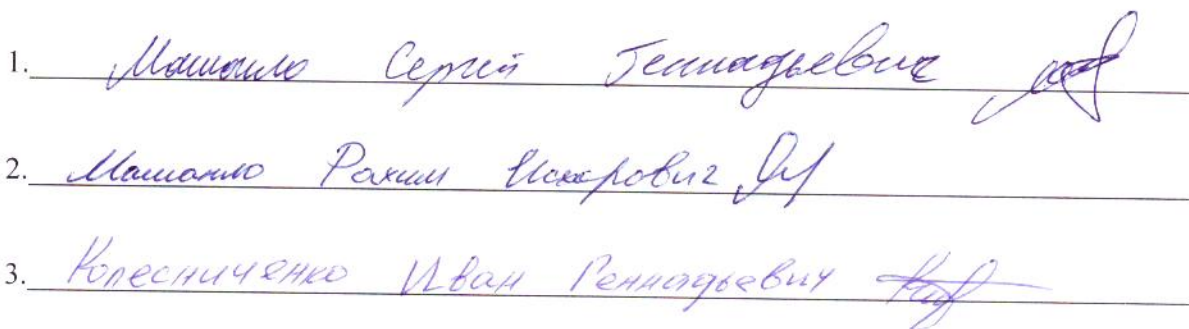 1. Машанло Сергей Геннадьевич
2. Машанло Рахим Исхарович
3. Колесниченко Иван Геннадьевич